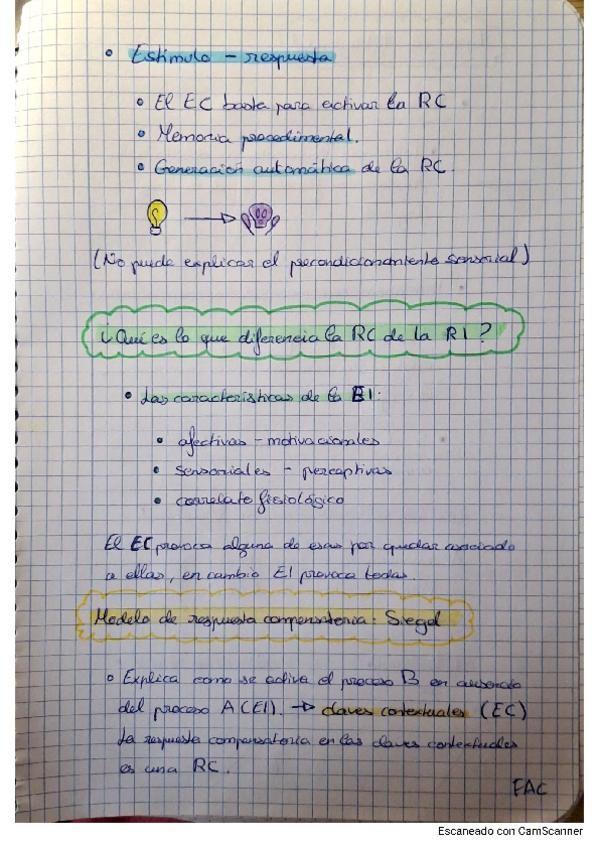 Estímulo - respuesta
El EC basta para activar la RC
Memoria procedimental.
Generación automática de la RC.
(No puede explicar el precondicionamiento sensorial)
¿Qué es lo que diferencia la RC de la RI?
Las características de la EI:
afectivas - motivacionales
sensoriales - perceptivas
correlato fisiológico
El EC provoca alguna de esas por quedar asociado
a ellas, en cambio EI provoca todas.
Modelo de respuesta compensatoria: Siegel
Explica como se activa el proceso B en ausencia
del proceso A (EI). → claves contextuales (EC)
La respuesta compensatoria en las claves contextuales
es una RC.
FAC
Escaneado con CamScanner